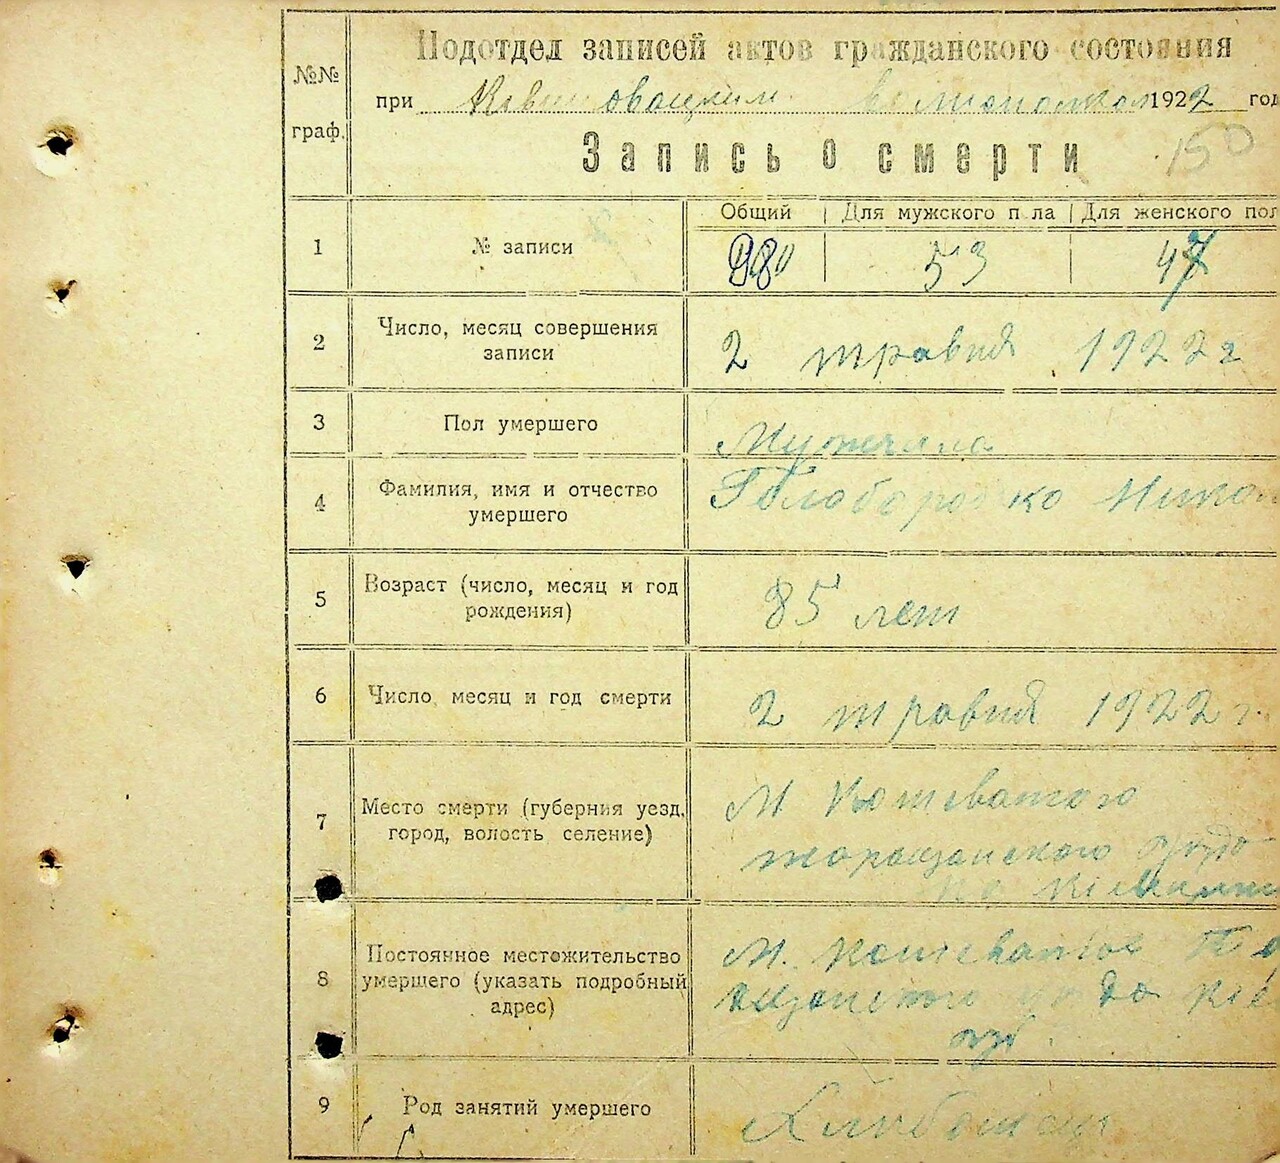 №№
граф.
Подотдел записей актов гражданского состояния
при волисполком 1922 год
Запись о смерти
150
Общий Для мужского п ла Для женского пол
1 № записи 98 53 47
2 Число, месяц совершения
записи
2 травня 1922 г
3 Пол умершего Мужчина
4 Фамилия, имя и отчество
умершего
Голобородько Никол
5 Возраст (число, месяц и год
рождения)
85 лет
6 Число, месяц и год смерти 2 травня 1922 г.
7 Место смерти (губерния уезд,
город, волость селение)
М Кошеватого
таращанского
8 Постоянное местожительство
умершего (указать подробный
адрес)
М. Кошеватое Та
9 Род занятий умершего Хлибопашец